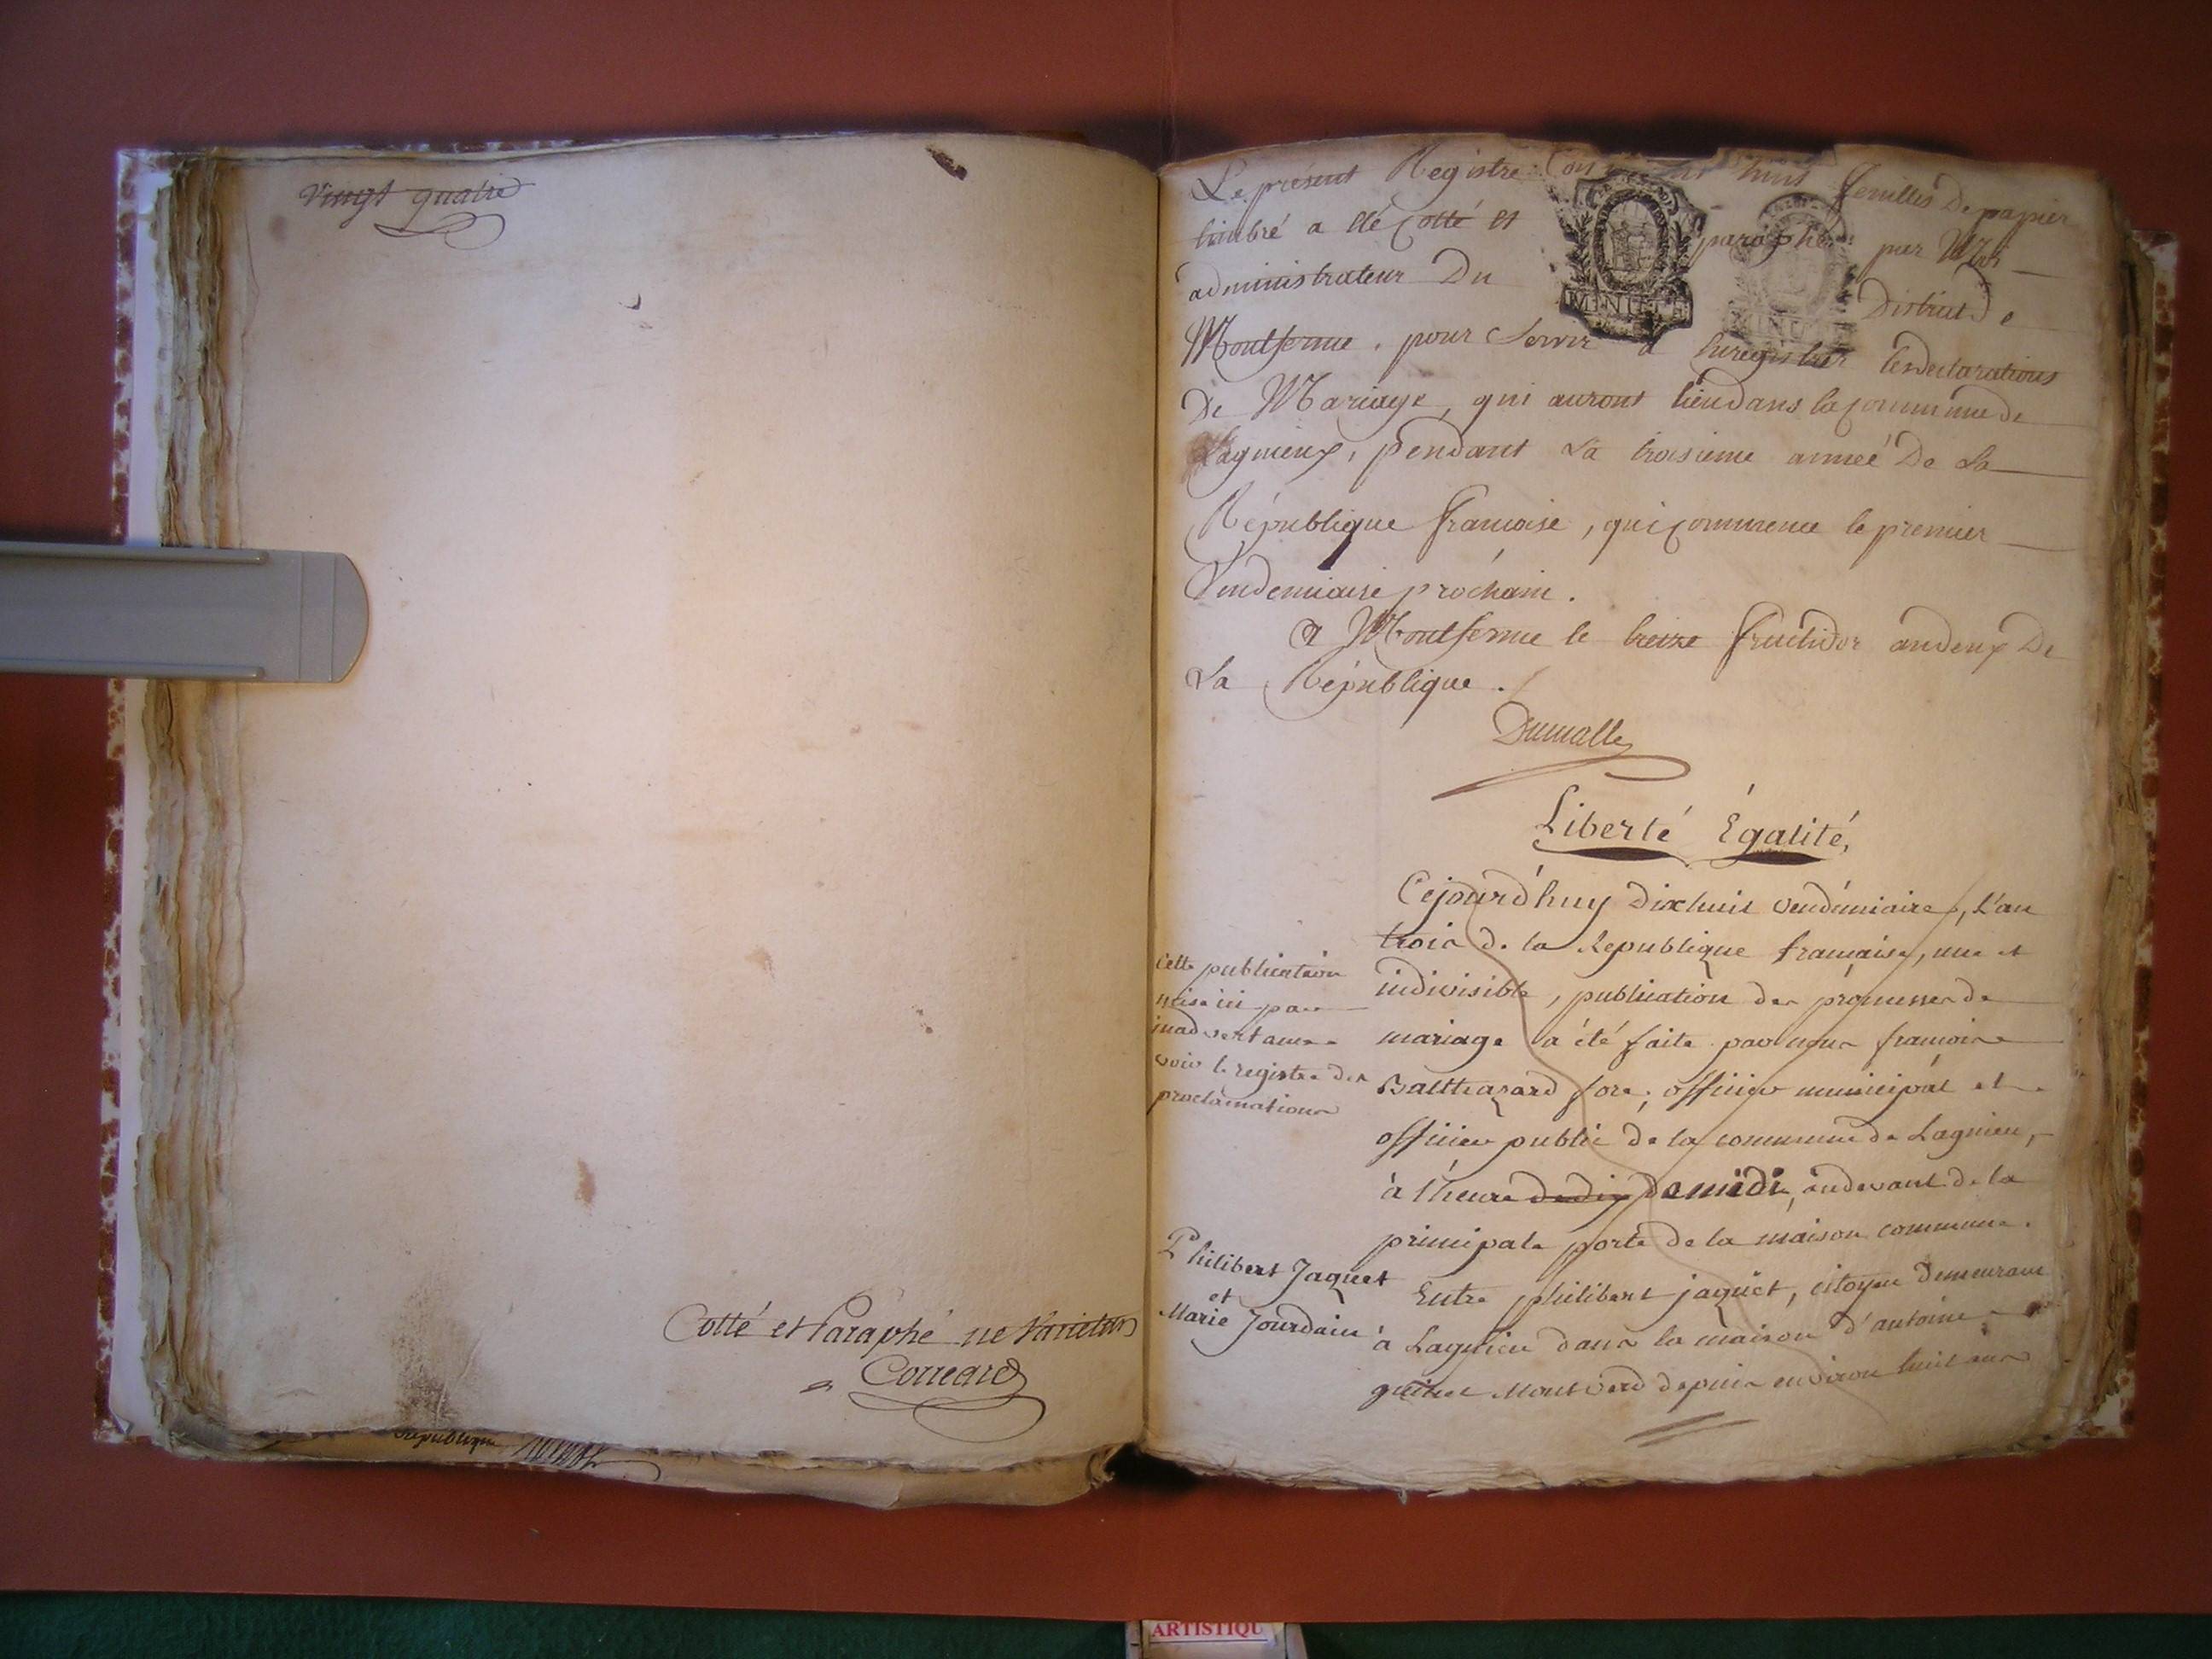 Vingt quatre
Cotté et Paraphé ne Varietur
Correard
République
Le présent Registre huit feuilles De papier
timbré a été Cotté et paraphé par Nous
administrateur Du District De
Montferme, pour Servir a Enregistrer les declarations
De Mariage, qui auront lieu dans la Commune de
Lagnieux, pendant La troisieme année De La
République francoise, qui Commence le premier
Vendemiaire prochain.
A Montferme le treize fructidor an deux De
La République.
Dumalle
MINUTE
MINUTE
Liberté Égalité,
Cejourd'huy dixhuit vendémiaire, l'an
trois de la Republique francaise, une et
indivisible, publication des promesses de
mariage a été faite par nous francois
Balthazard fore, officier municipal et
officier public de la commune de Lagnieu,
à l'heure de dix de midi, au devant de la
principale porte de la maison commune.
Cette publication
mise ici par
inadvertance
voir le registre des
proclamations
Philibert Jaquet
et
Marie Jourdain
Entre philibert jaquet, citoyen demeurant
à Lagnieu dans la maison d'antoine
guinet Montverd depuis environ huit ans
ARTISTIQU